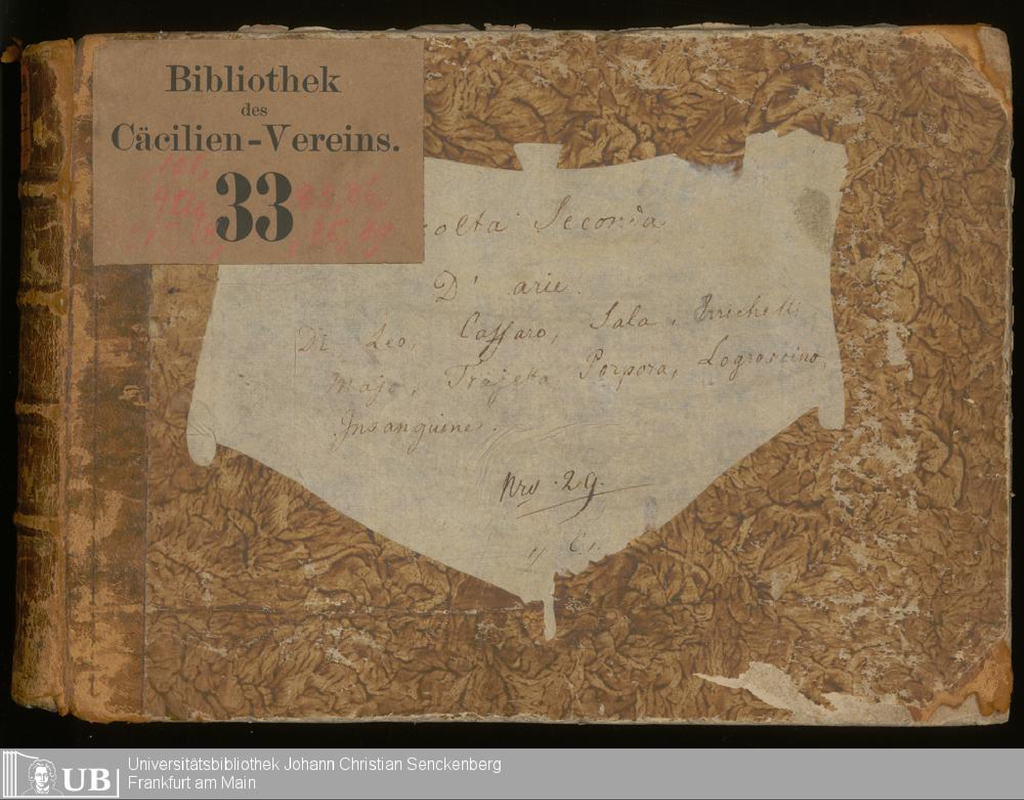 Bibliothek
des
Cäcilien-Vereins.
33
colta Seconda
D' arie.
Di Leo, Caffaro, Sala,
Majo, Trajetta Porpora, Logroscino,
Insanguine.
Nro. 29.
UB
Universitätsbibliothek Johann Christian Senckenberg
Frankfurt am Main